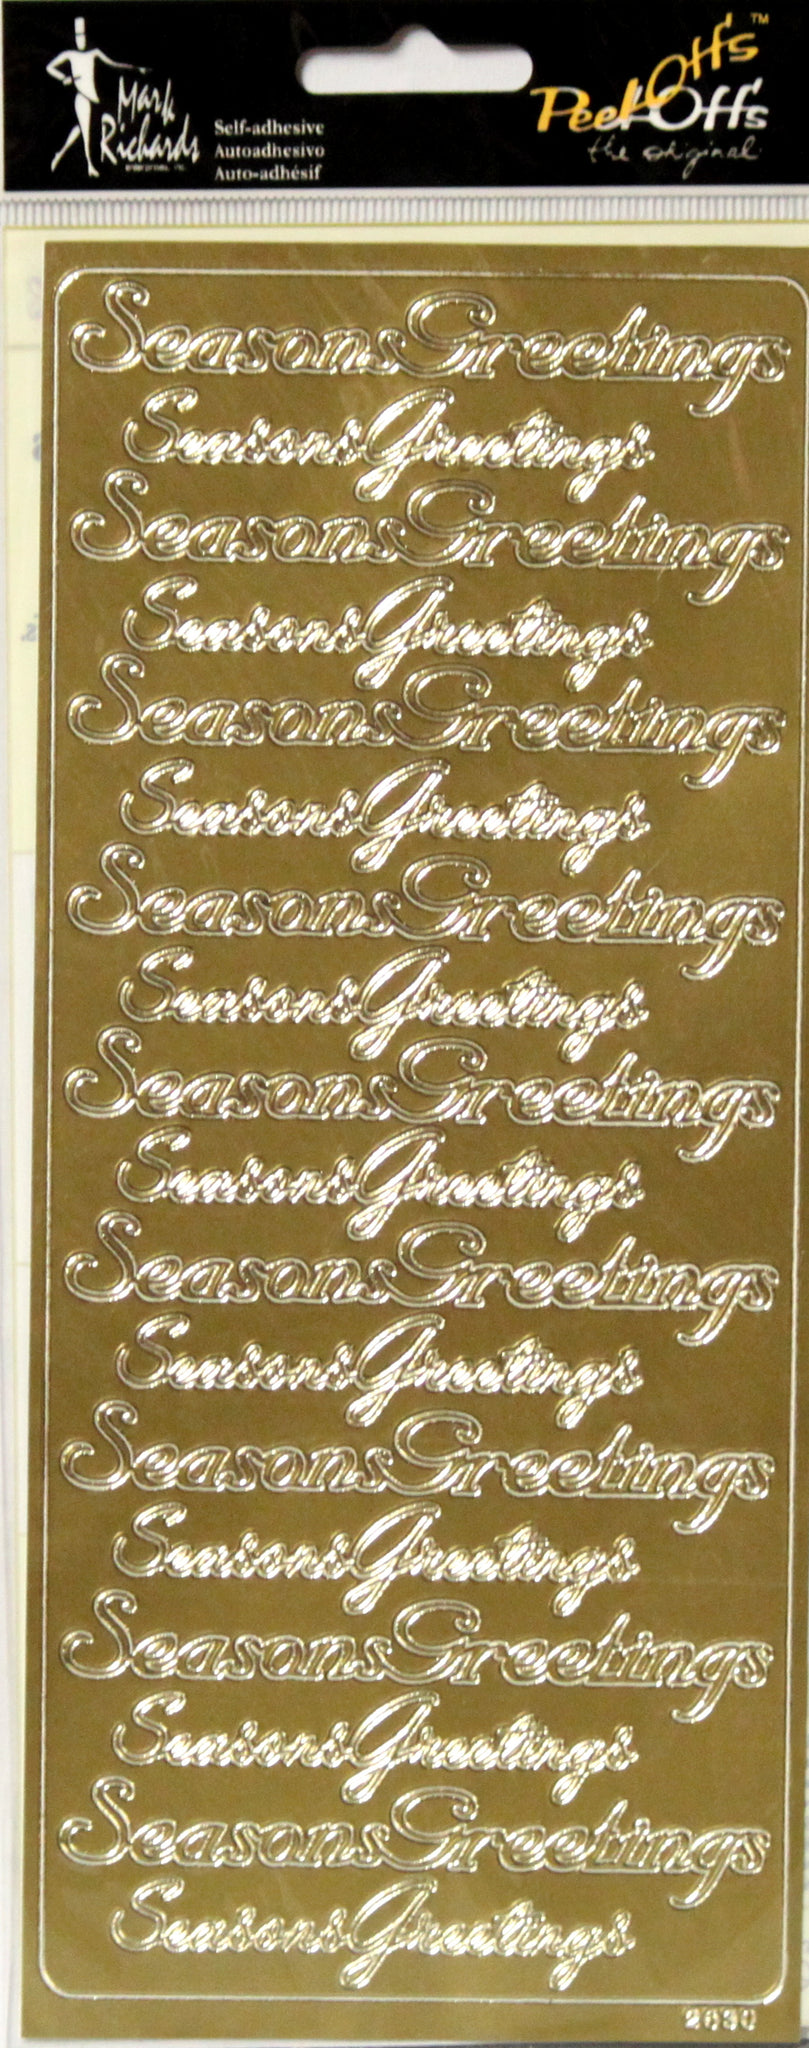 Mark
Richards
enterprises, inc.
Self-adhesive
Autoadhesivo
Auto-adhésif
Peel Off's™
the original
Seasons Greetings
Seasons Greetings
Seasons Greetings
Seasons Greetings
Seasons Greetings
Seasons Greetings
Seasons Greetings
Seasons Greetings
Seasons Greetings
Seasons Greetings
Seasons Greetings
Seasons Greetings
Seasons Greetings
Seasons Greetings
Seasons Greetings
Seasons Greetings
Seasons Greetings
Seasons Greetings
2630